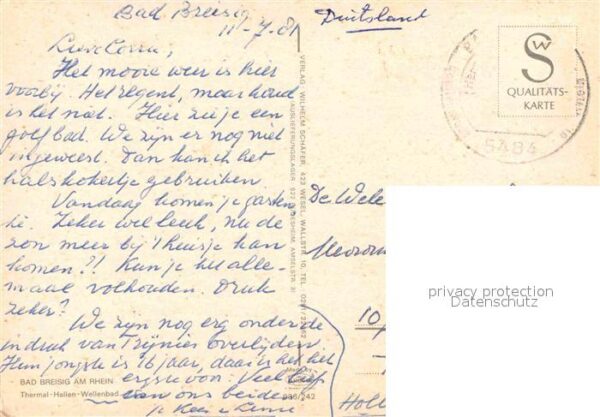 Bad Breisig
11-7-81
Duitsland
Lieve Corrie,
Het mooie weer is hier
voorbij. Het regent, maar koud
is het niet. Hier zie je een
golfbad. We zijn er nog niet
ingeweest. Dan kan ik het
halskokertje gebruiken.
Vandaag komen je gasten
Zeker wel leuk, nu de
zon meer bij 't huisje kan
komen?! Kun je het alle-
maal volhouden. Druk
zeker?
We zijn nog erg onder de
indruk van Trijnies overlijden
Hun jongste is 16 jaar, daar is het het
ergste voor. Veel liefs
van ons beiden
BAD BREISIG AM RHEIN
Thermal-Hallen-Wellenbad
936/242
VERLAG WILHELM SCHÄFER, 423 WESEL, WALLSTR. 10, TEL.
SW
QUALITÄTS-
KARTE
5484
De Wele
10
Holl
privacy protection
Datenschutz